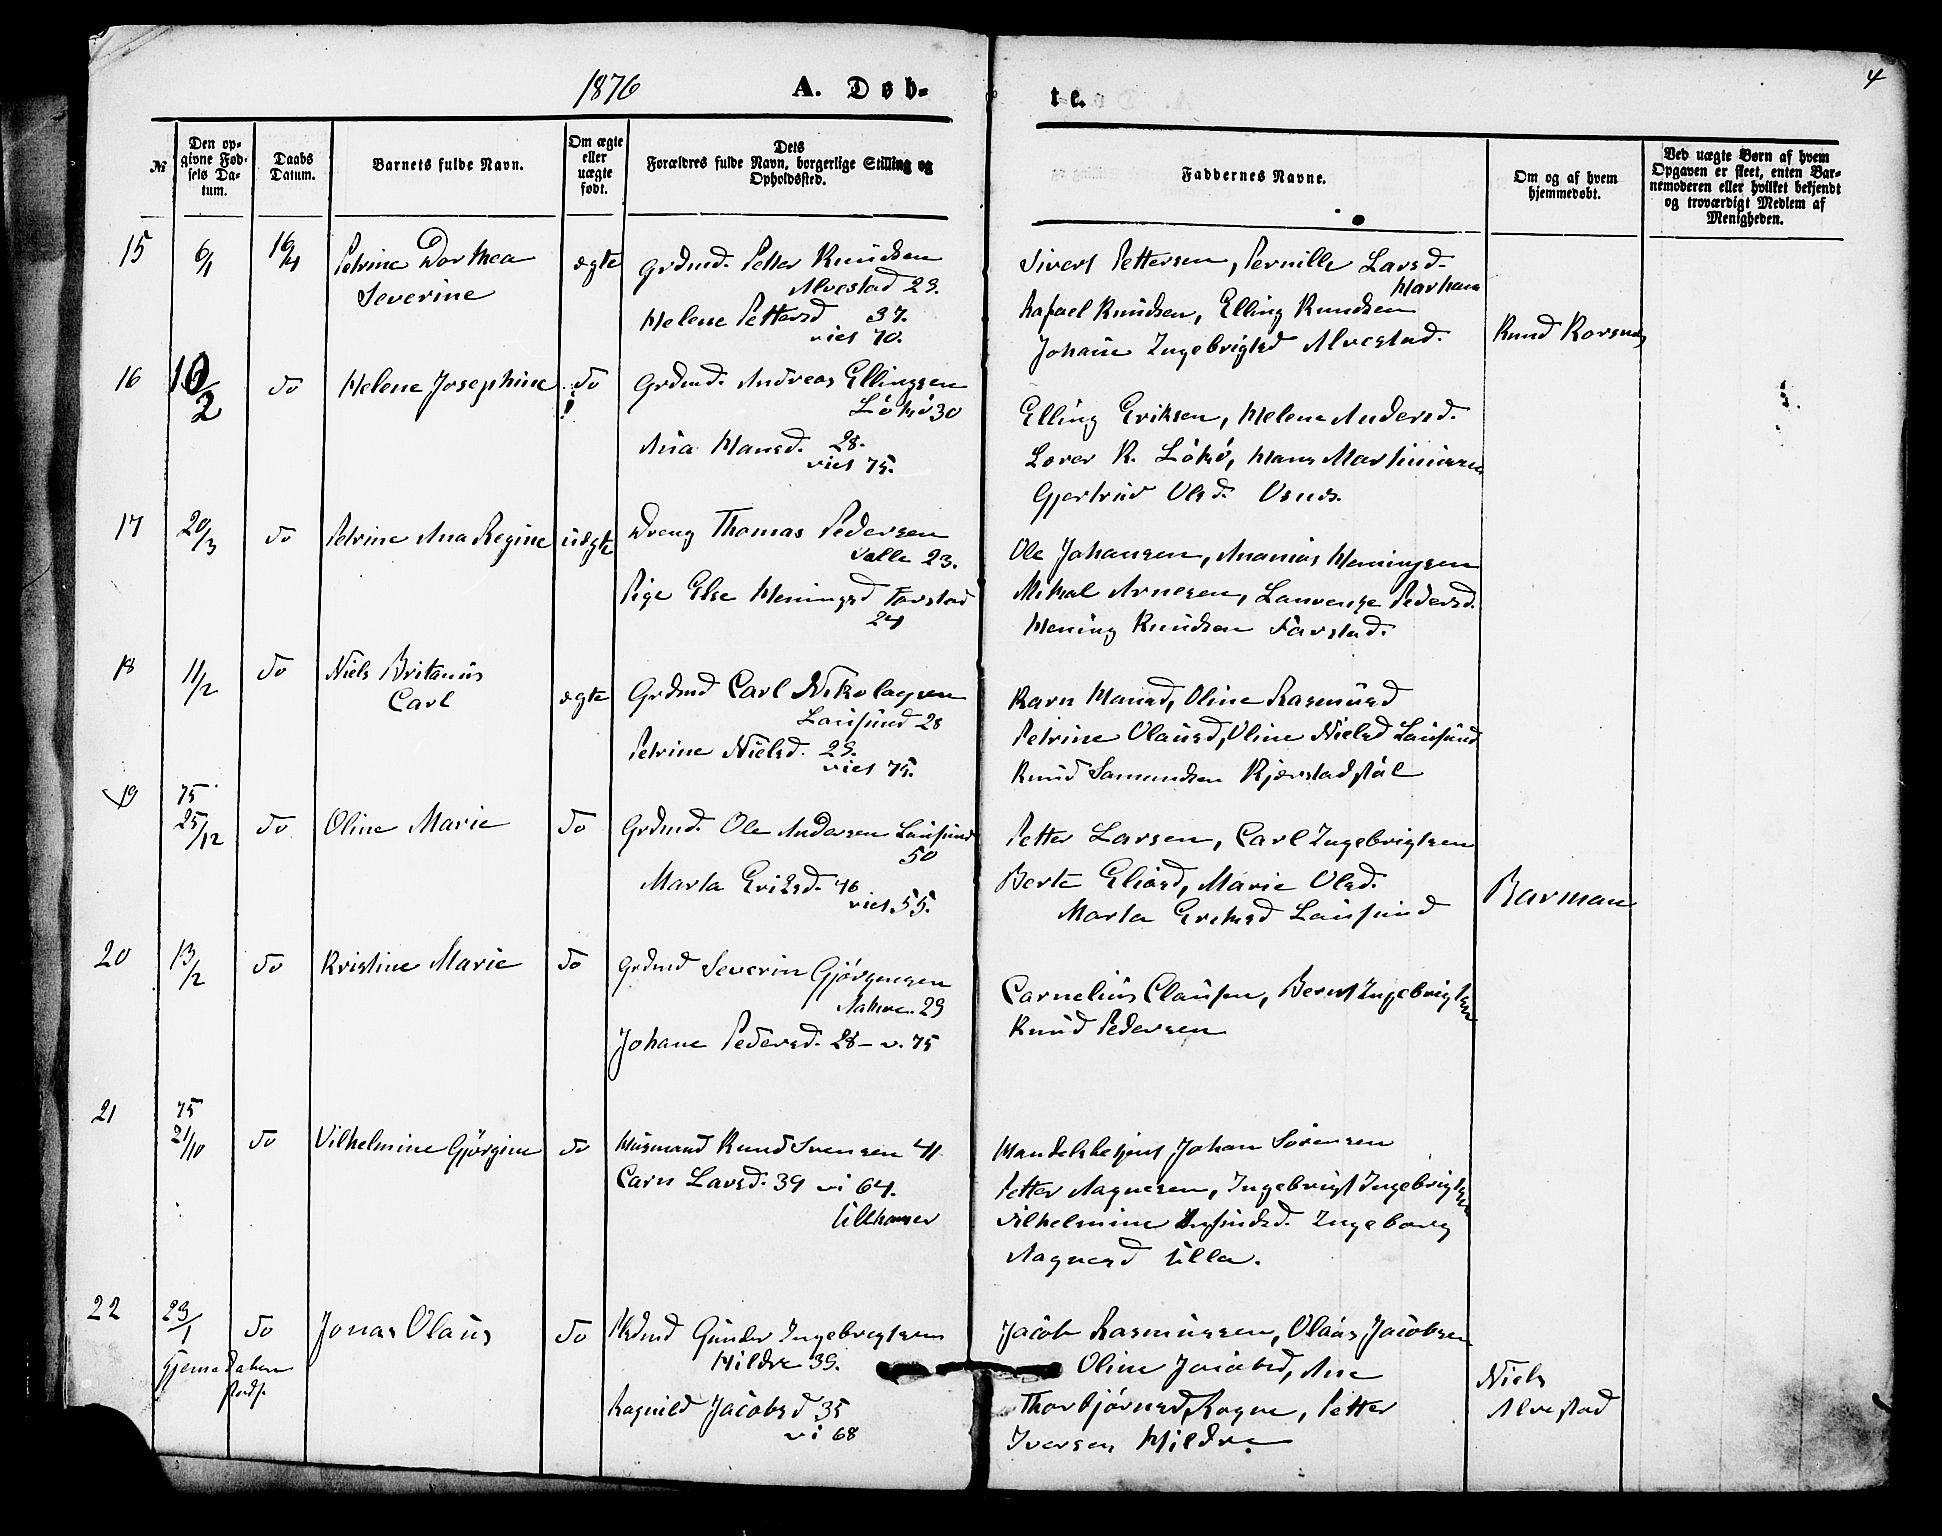 1876 A. Døb-
te.
4
№
Den op-
givne Fød-
sels Da-
tum.
Daabs
Datum.
Barnets fulde Navn.
Om ægte
eller
uægte
født.
Dets
Forældres fulde Navn, borgerlige Stilling og
Opholdssted.
Faddernes Navne.
Om og af hvem
hjemmedøbt.
Ved uægte Børn af hvem
Opgaven er skeet, enten Bar-
nemoderen eller hvilket bekjendt
og troværdigt Medlem af
Menigheden.
15 6/1 16/4 Petrine Dorthea
Severine
ægte
Grdmd. Petter Knudsen
Alvestad 23.
Helene Pettersd 37.
viet 70.
Sivert Pettersen, Pernille Larsd.
Harham
Rafael Knudsen, Elling Knudsen
Johane Ingebrigtsd Alvestad.
Knud Rorsnes
16 10/2 do Helene Josephine do
Grdmd. Andreas Ellingsen
Løkø 30
Ana Hansd. 28.
viet 75.
Elling Eriksen, Helene Andersd.
Lærer K. Løkø, Hans Martinussen
Gjertrud Olsd.
17 20/3 do Petrine Ana Regine uægte
Dreng Thomas Pedersen
Valle 23.
Pige Else Heningsd Farstad
24
Ole Johansen, Ananias Heningsen
Mikal Arnesen, Laurense Pedersd.
Hening Knudsen Farstad.
18 11/2 do Niels Britanus
Carl
ægte
Grdmd Carl Nikolaysen
Lausund 28
Petrine Nielsd. 23.
viet 75.
Karn Hansd, Oline Rasmusd
Petrine Olausd, Oline Nielsd Lausund
Knud Samundsen Kjerstadstøl
19 75
25/12 do Oline Marie do
Grdmd. Ole Andersen Lausund
50
Marta Eriksd. 46
viet 55.
Petter Larsen, Carl Ingebrigtsen
Berte Eliasd, Marie Olsd.
Marta Eriksd Lausund
Barman
20 13/2 do Kristine Marie do
Grdmd Severin Gjørgensen
Aakre 29
Johane Pedersd. 28 - v. 75
Carnelius Clausen, Bernt Ingebrigtsen
Knud Pedersen
21 75
21/10 do Vilhelmine Gjørgine do
Husmand Knud Svensen 41
Carn Larsd. 39 vi 64.
Ullhamer
Handelsbetjent Johan Sørensen
Petter Aagnesen, Ingebrigt Ingebrigtsen
Vilhelmine Ingeborg
Aagnesd Ulla.
22 23/1 do Jonas Olaus do
Hsdmd Gunder Ingebrigtsen
Hildre 39.
Ragnild Jacobsd 35
vi 68
Jacob Rasmussen, Olaus Jacobsen
Oline Jacobsd, Ane
Thorbjørnsd, Rogne, Petter
Iversen Hildre
Niels
Alvestad